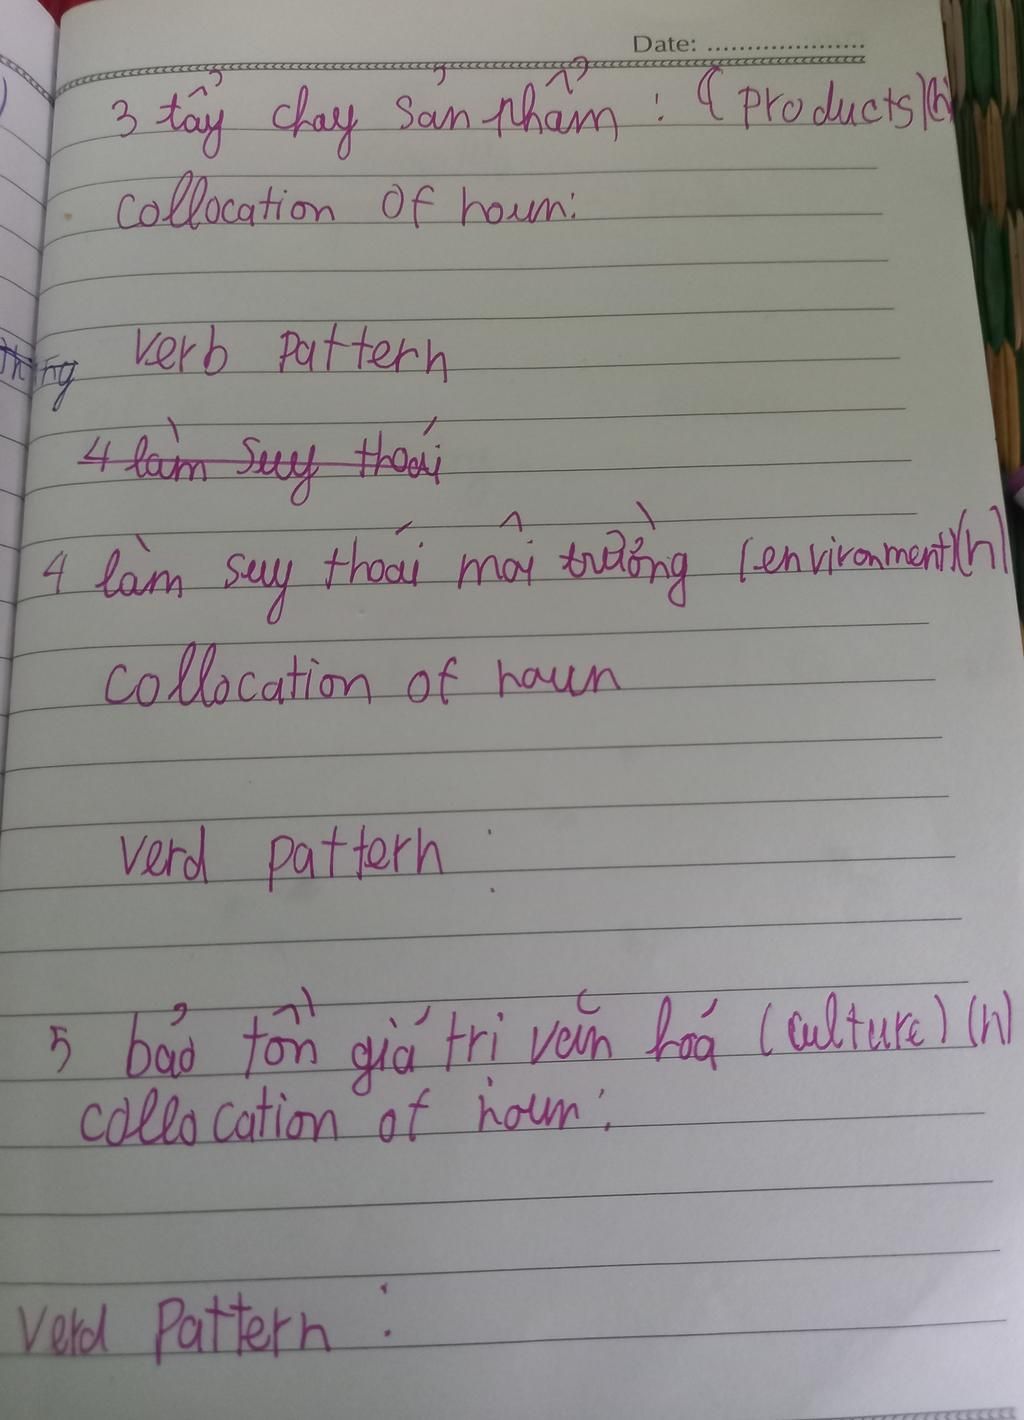 Date: ....................
3 tẩy chay sản phẩm : (products)(n)
collocation of noun:
verb pattern
4 làm suy thoái
4 làm suy thoái môi trường (environment)(n)
collocation of noun
verd pattern :
5 bảo tồn giá trị văn hoá (culture) (n)
collocation of noun:
verd pattern :